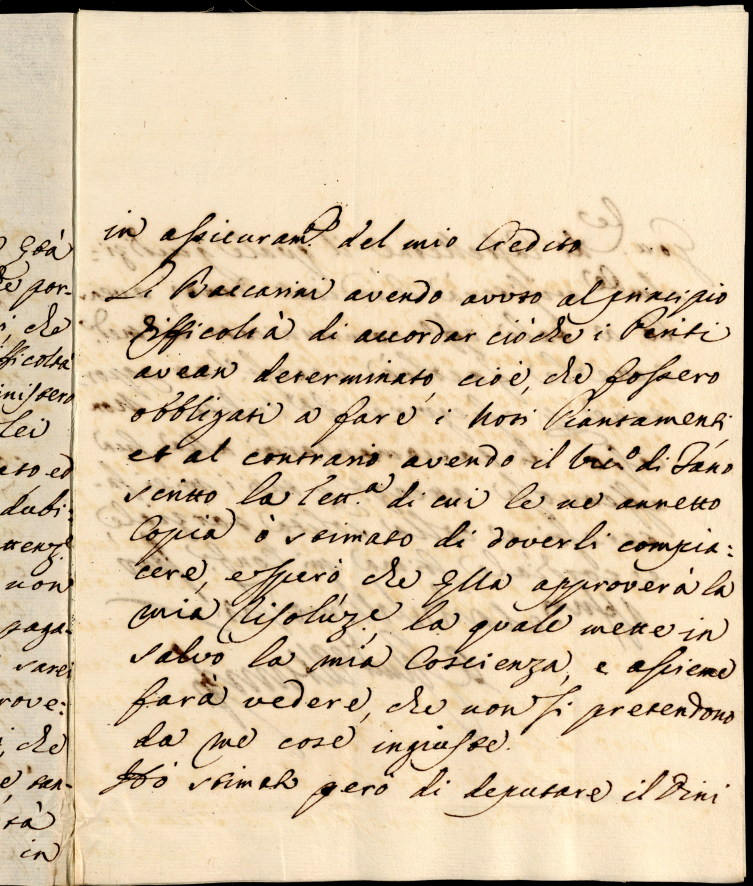 già
por-
che
fficoltà
nistero
lei
ato ed
dubi:
non
paga-
sarei
rove:
che
tan-
tà
in
in assicuram.o del mio Credito
Li Baccarini avendo avuto al principio
difficoltà di accordar ciòche i Periti
avean determinato, cioè, che fossero
obbligati a fare i noti Piantamenti
et al contrario avendo il Vic.o di Fano
scritto la lett.a di cui le ne annetto
Copia ò stimato di doverli compia:
cere, e spero che Ella approverà la
mia risolúz.e, la quale mette in
salvo la mia Coscienza, e assieme
farà vedere, che non si pretendono
da me cose ingiuste.
Hò stimato però di deputare il Dini